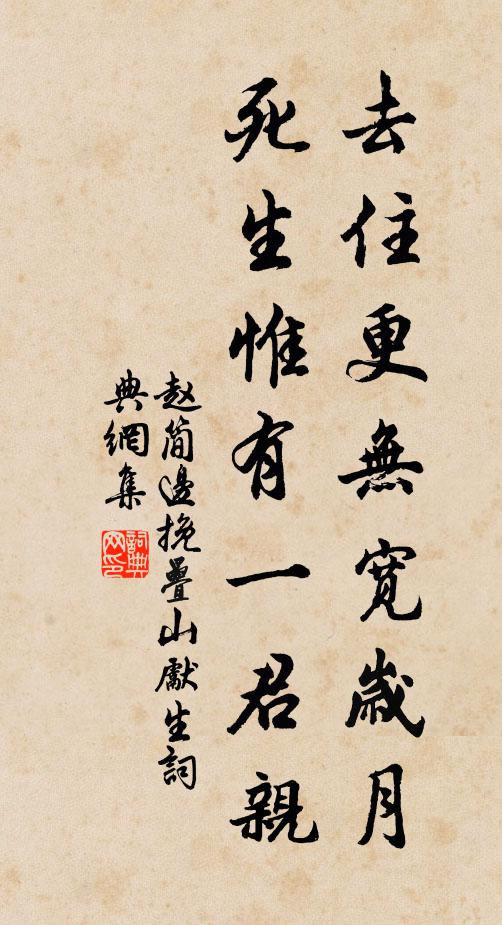 去住更無寬歲月
死生惟有一君親
赵简邊挽疊山獻生詞
典網集
詞典网印